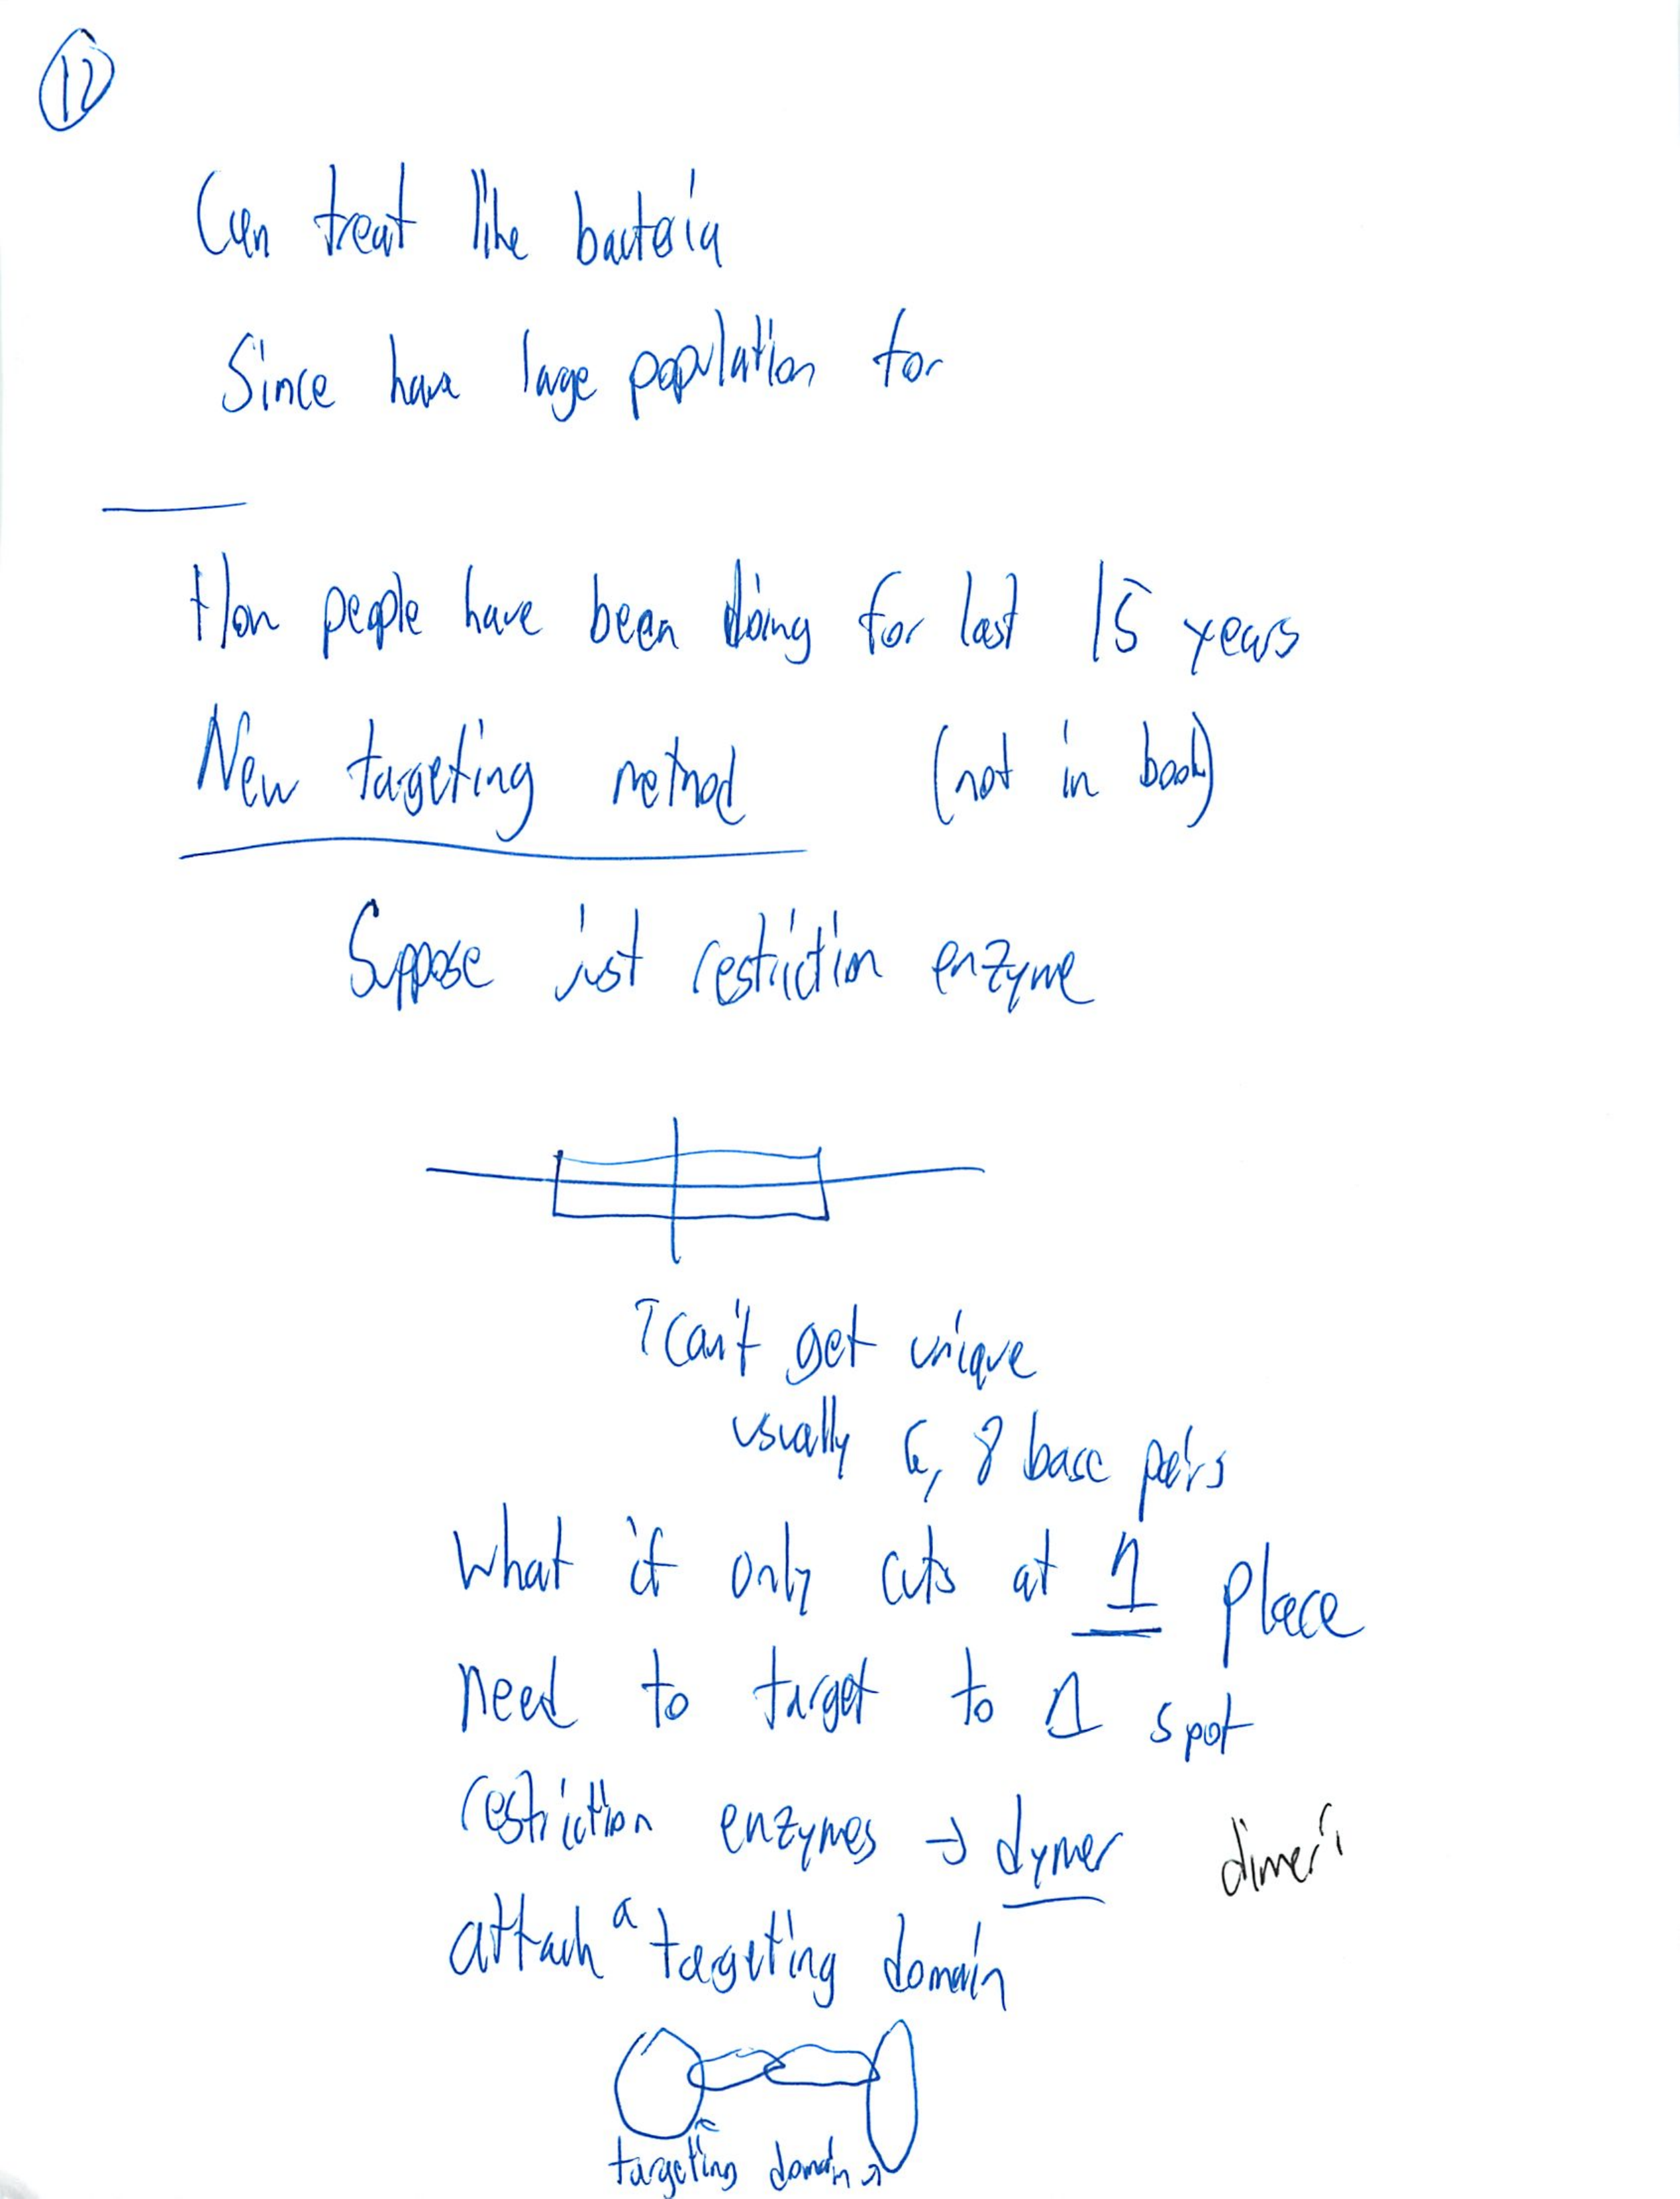 12
Can treat like bacteria
Since have large population for
How people have been doing for last 15 years
New targeting method (not in book)
Suppose just restriction enzyme
↑ can't get unique
usually 6, 8 base pairs
What if only cuts at 1 place
need to target to 1 spot
restriction enzymes → dymer dimer
attach a targeting domain
targeting domain